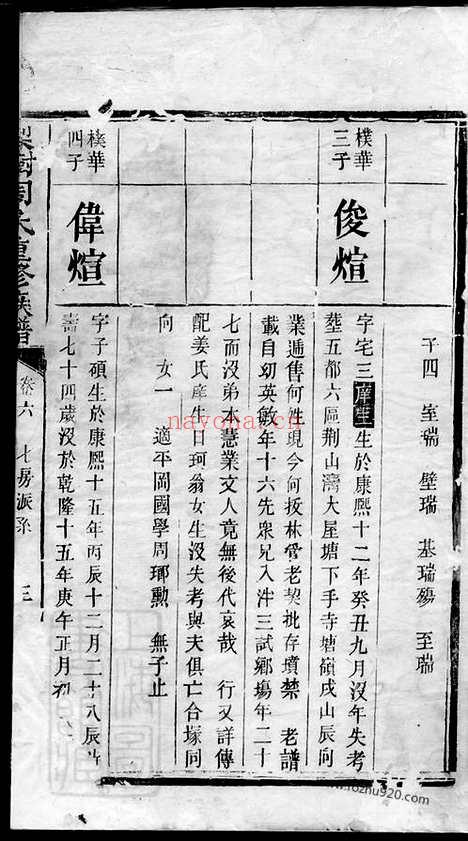 子四 崑瑞 壁瑞 基瑞殤 至瑞
樸華
三子
俊煊
字宅三庠生生於康熙十二年癸丑九月沒年失考
塟五都六區荆山灣大屋塘下手寺塘嶺戌山辰向
業遞售何姓現今何扳林管老契批存墳禁 老譜
載自幼英敏年十六先衆兄入泮三試鄉場年二十
七而沒弟本慧業文人竟無後代哀哉 行又詳傳
配姜氏庠生日珂翁女生沒失考與夫俱亡合塚同
向 女一 適平岡國學周瑘勲 無子止
樸華
四子
偉煊
字子碩生於康熙十五年丙辰十二月二十八辰時
壽七十四歲沒於乾隆十五年庚午正月初
周氏重修族譜
卷六 七房派系 三
nayona.cn
www.rozhu920.com